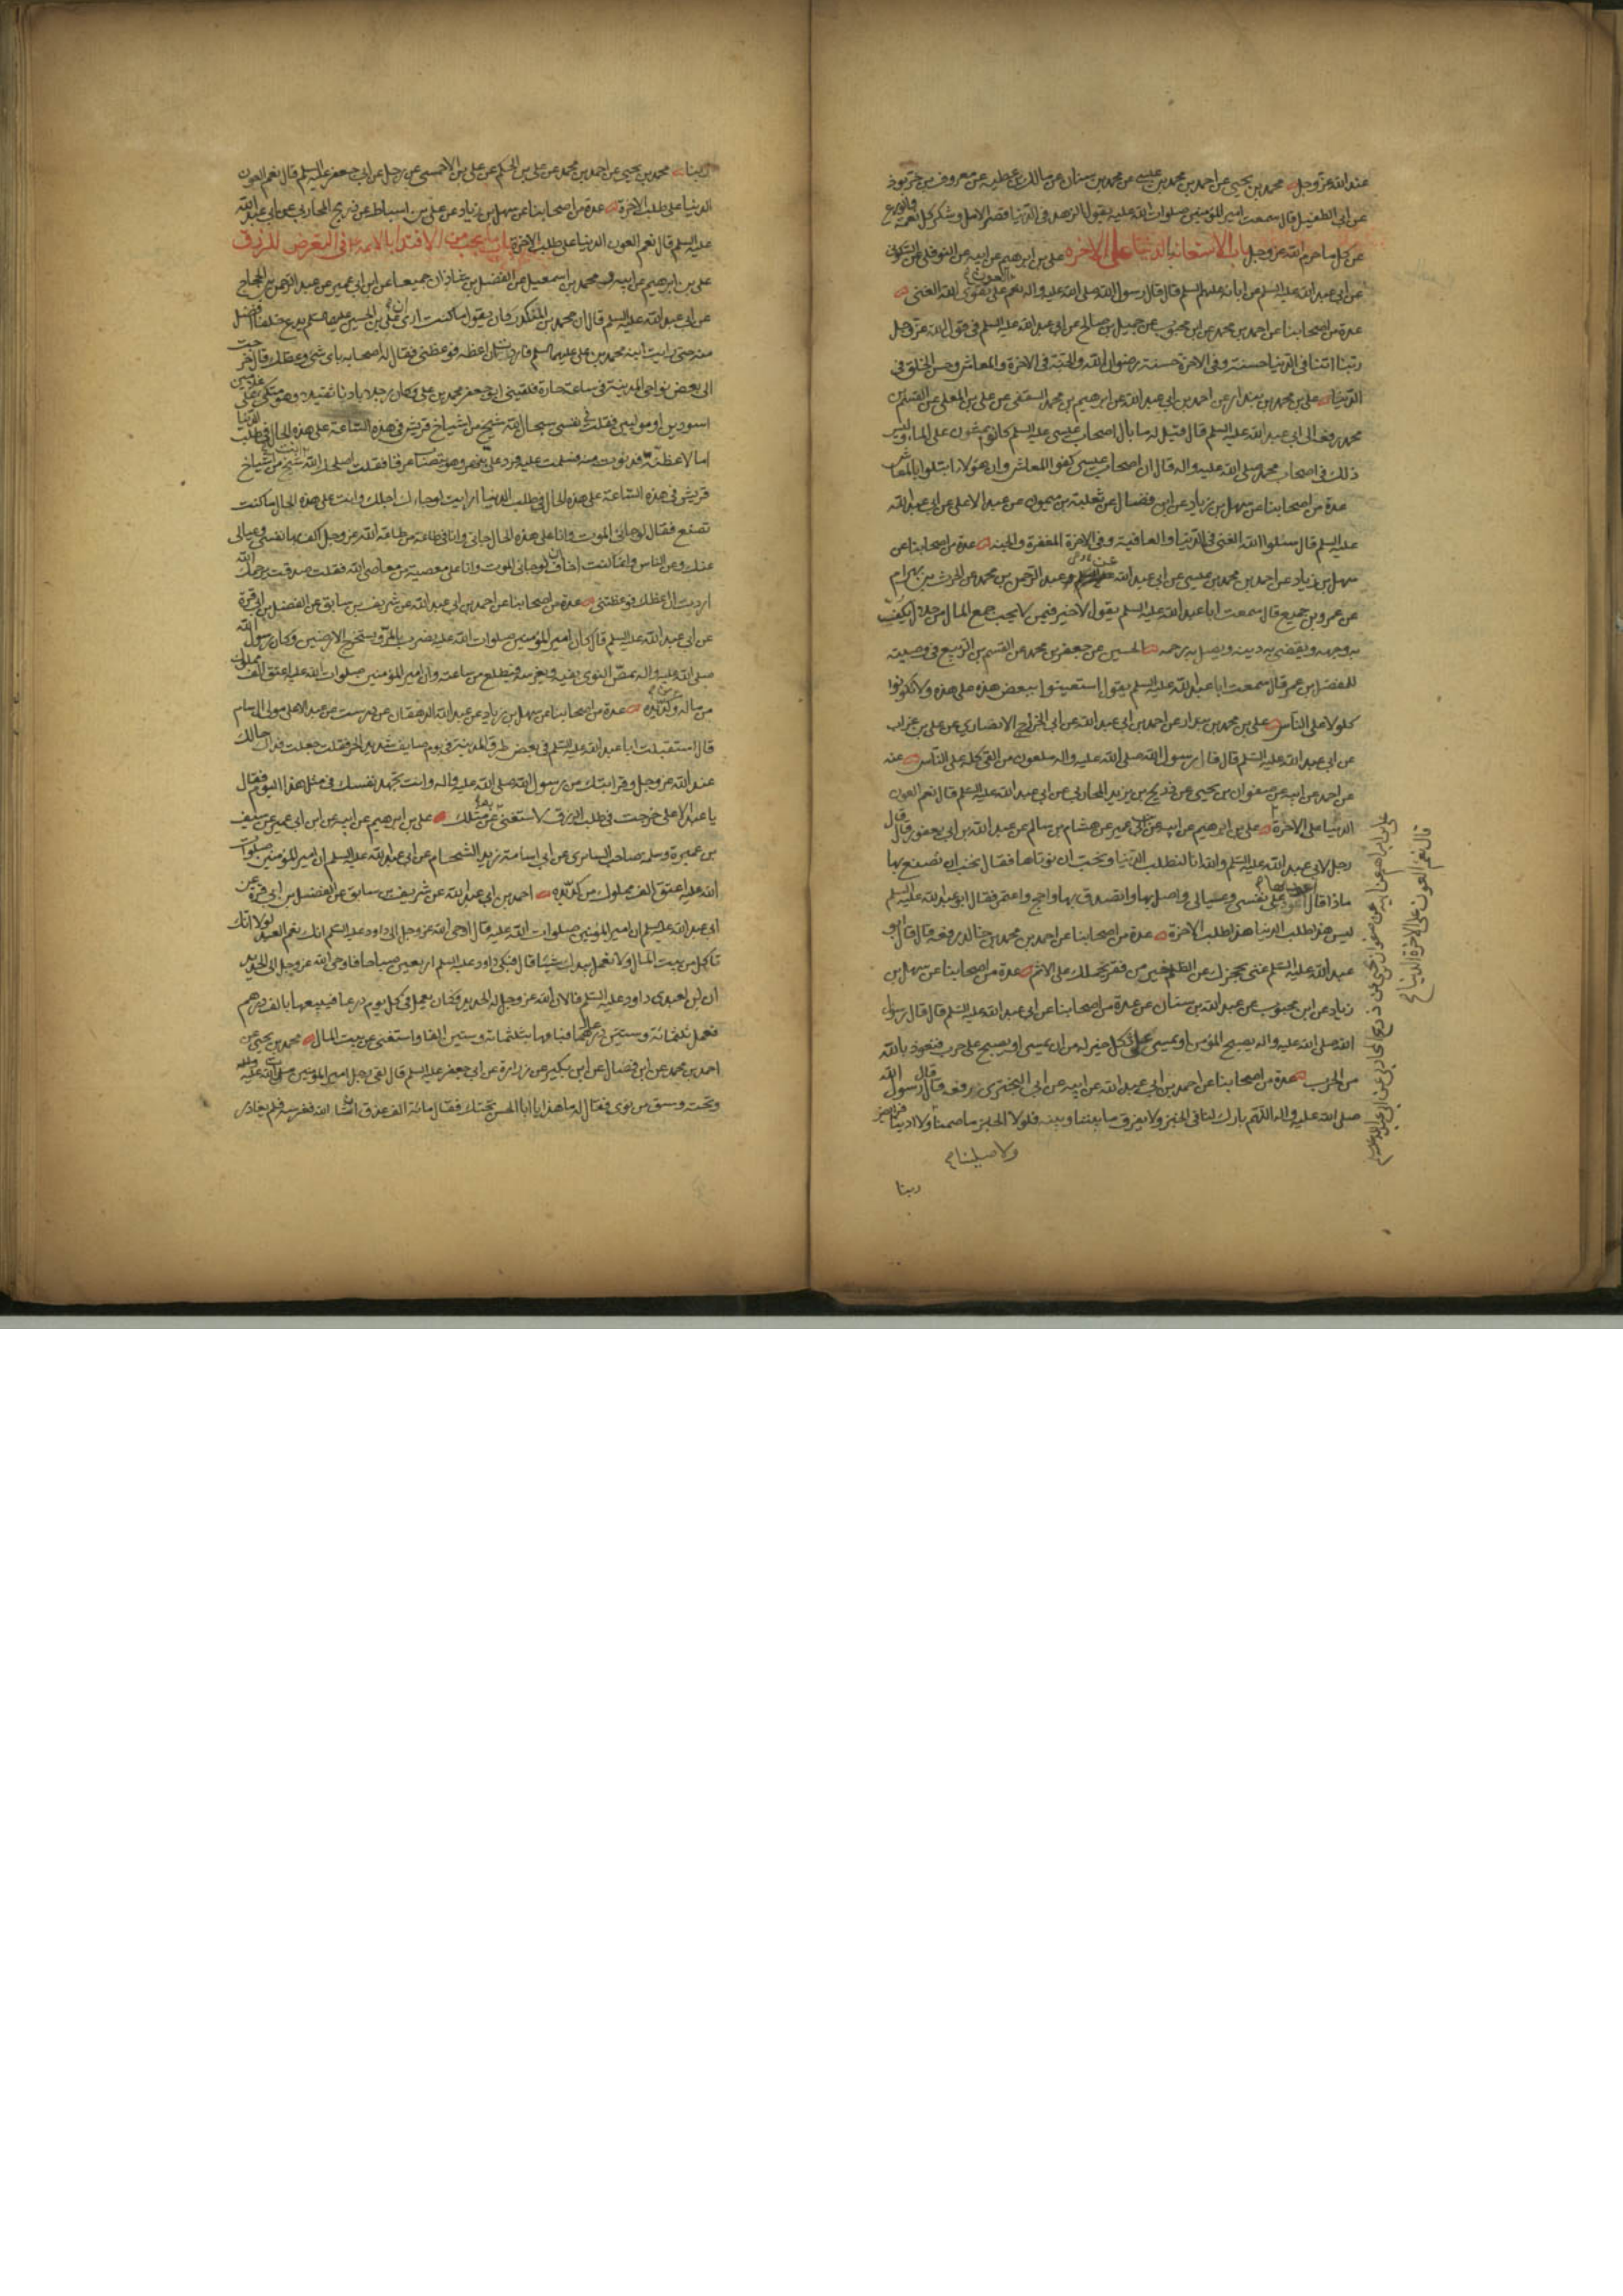 عند الله عز وجل محمد بن يحيى عن احمد بن محمد بن عيسى عن محمد بن سنان عن مالك بن عطيه عن معروف بن خربوذ
عن ابى الطفيل قال سمعت امير المؤمنين صلوات الله عليه يقول الزهد فى الدنيا قصر الامل وشكر كل نعمة والورع
عن كل ما حرم الله عز وجل باب الاستعانة بالدنيا على الاخرة على بن ابرهيم عن ابيه عن النوفلى عن السكونى
عن ابى عبد الله عليه السلم عن ابائه عليهم السلم قال قال رسول الله صلى الله عليه واله نعم العون على تقوى الله الغنى
عدة من اصحابنا عن احمد بن محمد عن ابن محبوب عن جميل بن صالح عن ابى عبد الله عليه السلم فى قول الله عز وجل
ربنا اتنا فى الدنيا حسنة وفى الاخرة حسنة رضوان الله والجنة فى الاخرة والمعاش وحسن الخلق فى
الدنيا على بن محمد بن بندار عن احمد بن ابى عبد الله عن ابرهيم بن محمد الثقفى عن على بن المعلى عن القسم بن
محمد رفعه الى ابى عبد الله عليه السلم قال قيل له ما بال اصحاب عيسى عليه السلم كانوا يمشون على الماء وليس
ذلك فى اصحاب محمد صلى الله عليه واله قال ان اصحاب عيسى كفوا المعاش وان هؤلاء ابتلوا بالمعاش
عدة من اصحابنا عن سهل بن زياد عن ابن فضال عن ثعلبة بن ميمون عن عبد الاعلى عن ابى عبد الله
عليه السلم قال سئلوا الله الغنى فى الدنيا والعافية وفى الاخرة المغفرة والجنه عدة من اصحابنا عن
سهل بن زياد عن احمد بن محمد بن عيسى عن ابى عبد الله عن عبد الرحمن بن محمد عن الحرث بن بهرام
عن عمرو بن جميع قال سمعت ابا عبد الله عليه السلم يقول لا خير فيمن لا يحب جمع المال من حلال يكف
به وجهه ويقضى به دينه ويصل به رحمه الحسين عن جعفر بن محمد عن القسم بن الربيع فى وصيته
للمفضل بن عمر قال سمعت ابا عبد الله عليه السلم يقول استعينوا ببعض هذه على هذه ولا تكونوا
كلولا على الناس على بن محمد بن بندار عن احمد بن ابى عبد الله عن ابى الخزرج الانصارى عن على بن غراب
عن ابى عبد الله عليه السلم قال قال رسول الله صلى الله عليه واله ملعون من القى كله على الناس عنه
عن احمد عن ابيه عن صفوان بن يحيى عن ذريح بن يزيد المحاربى عن ابى عبد الله عليه السلم قال نعم العون
الدنيا على الاخرة على بن ابرهيم عن ابيه عن ابن ابى عمير عن هشام بن سالم عن عبد الله بن ابى يعفور قال قال
رجل لابى عبد الله عليه السلم والله انا لنطلب الدنيا ونحب ان نوتاها فقال تحب ان تصنع بها
ماذا قال اعود بها على نفسى وعيالى واصل بها واتصدق بها واحج واعتمر فقال ابو عبد الله عليه السلم
ليس هذا طلب الدنيا هذا طلب الاخرة عدة من اصحابنا عن احمد بن محمد بن خالد رفعه قال قال ابو
عبد الله عليه السلم غنى يحجزك عن الظلم خير من فقر يحملك على الاثم عدة من اصحابنا عن سهل بن
زياد عن ابن محبوب عن عبد الله بن سنان عن عدة من اصحابنا عن ابى عبد الله عليه السلم قال قال رسول
الله صلى الله عليه واله يصبح المؤمن او يمسى على ثكل خير له من ان يمسى او يصبح على حرب فنعوذ بالله
من الحرب عدة من اصحابنا عن احمد بن ابى عبد الله عن ابيه عن ابى البخترى رفعه قال قال رسول الله
صلى الله عليه واله اللهم بارك لنا فى الخبز ولا تفرق بيننا وبينه فلولا الخبز ما صمنا ولا ادينا
ولا صلينا
ربنا
على بن ابراهيم عن ابيه عن صفوان بن يحيى عن ذريح المحاربى عن ابى عبد الله عليه السلم
قال نعم العون على الاخرة الدنيا
ربنا محمد بن يحيى عن احمد بن محمد عن على بن الحكم عن على بن الاحمسى عن رجل عن ابى جعفر عليه السلم قال نعم العون
الدنيا على طلب الاخرة عدة من اصحابنا عن سهل بن زياد عن على بن اسباط عن ذريح المحاربى عن ابى عبد الله
عليه السلم قال نعم العون الدنيا على طلب الاخرة باب ما يجب من الاقتداء بالائمه فى التعرض للرزق
على بن ابرهيم عن ابيه ومحمد بن اسمعيل عن الفضل بن شاذان جميعا عن ابن ابى عمير عن عبد الرحمن بن الحجاج
عن ابى عبد الله عليه السلم قال ان محمد بن المنكدر كان يقول ما كنت ارى ان على بن الحسين يدع خلفا افضل
منه حتى رايت ابنه محمد بن على عليهما السلم فاردت ان اعظه فوعظنى فقال له اصحابه باى شئ وعظك قال خرجت
الى بعض نواحى المدينة فى ساعة حارة فلقينى ابو جعفر محمد بن على وكان رجلا بادنا ثقيلا وهو متكئ على غلامين
اسودين او موليين فقلت فى نفسى سبحان الله شيخ من اشياخ قريش فى هذه الساعة على هذه الحال فى طلب الدنيا
اما لاعظنه فدنوت منه فسلمت عليه فرد على بنهر وهو يتصاب عرقا فقلت اصلحك الله شيخ من اشياخ
قريش فى هذه الساعة على هذه الحال فى طلب الدنيا ارايت لو جاءك اجلك وانت على هذه الحال ما كنت
تصنع فقال لو جاءنى الموت وانا على هذه الحال جاءنى وانا فى طاعة من طاعة الله عز وجل اكف بها نفسى وعيالى
عنك وعن الناس وانما كنت اخاف ان لو جاءنى الموت وانا على معصية من معاصى الله فقلت صدقت يرحمك الله
اردت ان اعظك فوعظتنى عدة من اصحابنا عن احمد بن ابى عبد الله عن شريف بن سابق عن الفضل بن ابى قرة
عن ابى عبد الله عليه السلم قال كان امير المؤمنين صلوات الله عليه يضرب بالمر ويستخرج الارضين وكان رسول الله
صلى الله عليه واله يمص النوى بفيه ويغرسه فيطلع من ساعته وان امير المؤمنين صلوات الله عليه اعتق الف مملوك
من ماله وكد يده عدة من اصحابنا عن سهل بن زياد عن عبد الله الدهقان عن درست عن عبد الاعلى مولى ال سام
قال استقبلت ابا عبد الله عليه السلم فى بعض طرق المدينة فى يوم صايف شديد الحر فقلت جعلت فداك حالك
عند الله عز وجل وقرابتك من رسول الله صلى الله عليه واله وانت تجهد نفسك فى مثل هذا اليوم فقال
يا عبد الاعلى خرجت فى طلب الرزق لاستغنى به عن مثلك على بن ابرهيم عن ابيه عن ابن ابى عمير عن سيف
بن عميرة وسلمه صاحب السابرى عن ابى اسامة زيد الشحام عن ابى عبد الله عليه السلم ان امير المؤمنين صلوات
الله عليه اعتق الف مملوك من كد يده احمد بن ابى عبد الله عن شريف بن سابق عن الفضل بن ابى قرة عن
ابى عبد الله عليه السلم ان امير المؤمنين صلوات الله عليه قال اوحى الله عز وجل الى داود عليه السلم انك نعم العبد لولا انك
تاكل من بيت المال ولا تعمل بيدك شيئا قال فبكى داود عليه السلم اربعين صباحا فاوحى الله عز وجل الى الحديد
ان لن لعبدى داود عليه السلم فالان الله عز وجل له الحديد فكان يعمل فى كل يوم درعا فيبيعها بالف درهم
فعمل ثلثمائة وستين درعا فباعها بثلثمائة وستين الفا واستغنى عن بيت المال محمد بن يحيى عن
احمد بن محمد عن ابن فضال عن ابن بكير عن زرارة عن ابى جعفر عليه السلم قال لقى رجل امير المؤمنين صلوات الله عليه
وتحته وسق من نوى فقال له ما هذا يا ابا الحسن تحتك فقال مائة الف عذق ان شاء الله فغرسه فلم يغادر